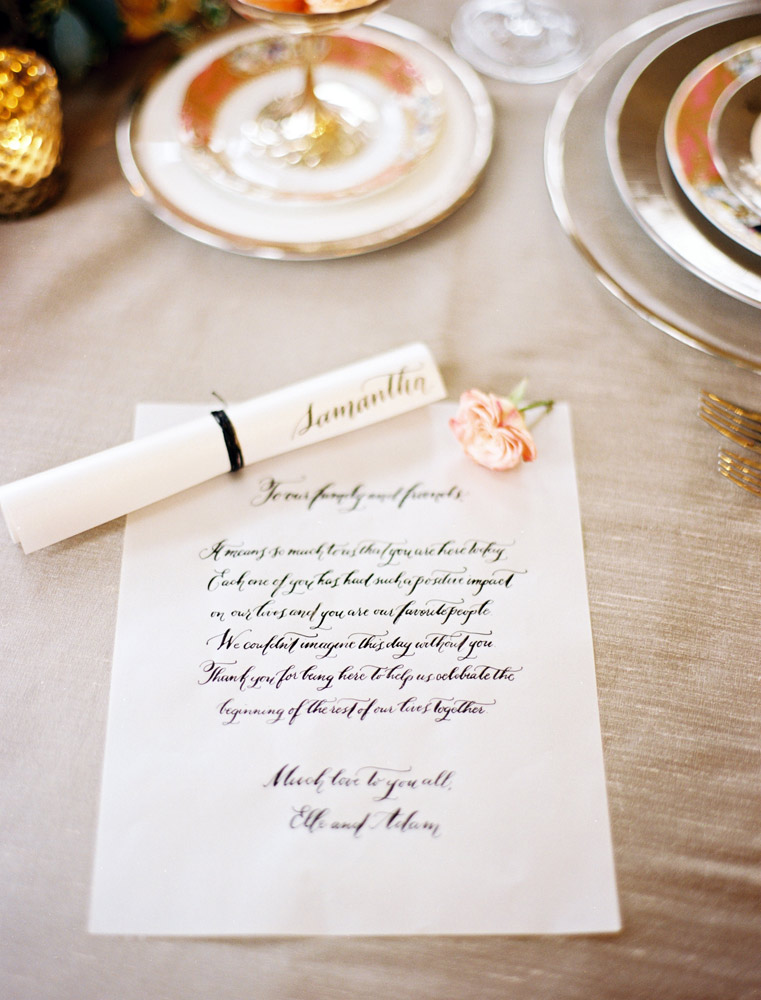 Samantha
To our family and friends,
It means so much to us that you are here today.
Each one of you has had such a positive impact
on our lives and you are our favorite people.
We couldn't imagine this day without you.
Thank you for being here to help us celebrate the
beginning of the rest of our lives together.
Much love to you all,
Elle and Adam